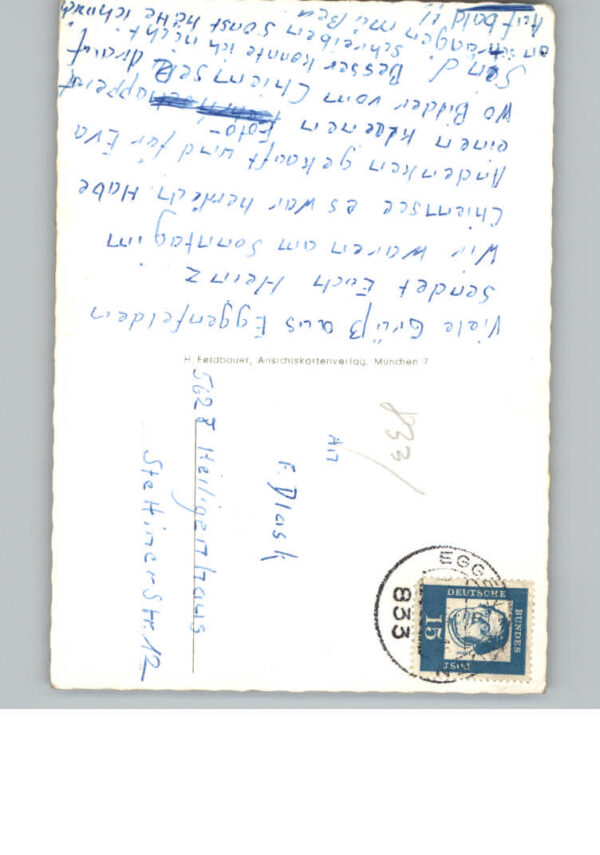 Viele Grüß aus Eggenfelden
sendet Euch Heinz
Wir waren am Sonntag im
Chiemsee es war herrlich. Habe
Andenken gekauft und für Eva
einen kleenen Foto-
Wo Bilder vom Chiemsee drauf
Sind. Besser konnte ich nicht
schreiben sonst hätte ich
müßen
Auf bald!!
H. Feldbauer, Ansichtskartenverlag, München 7
833
An
F. Plask
5628 Heiligenhaus
Stettiner Str. 12
EGGE
833
DEUTSCHE
BUNDES
POST
15